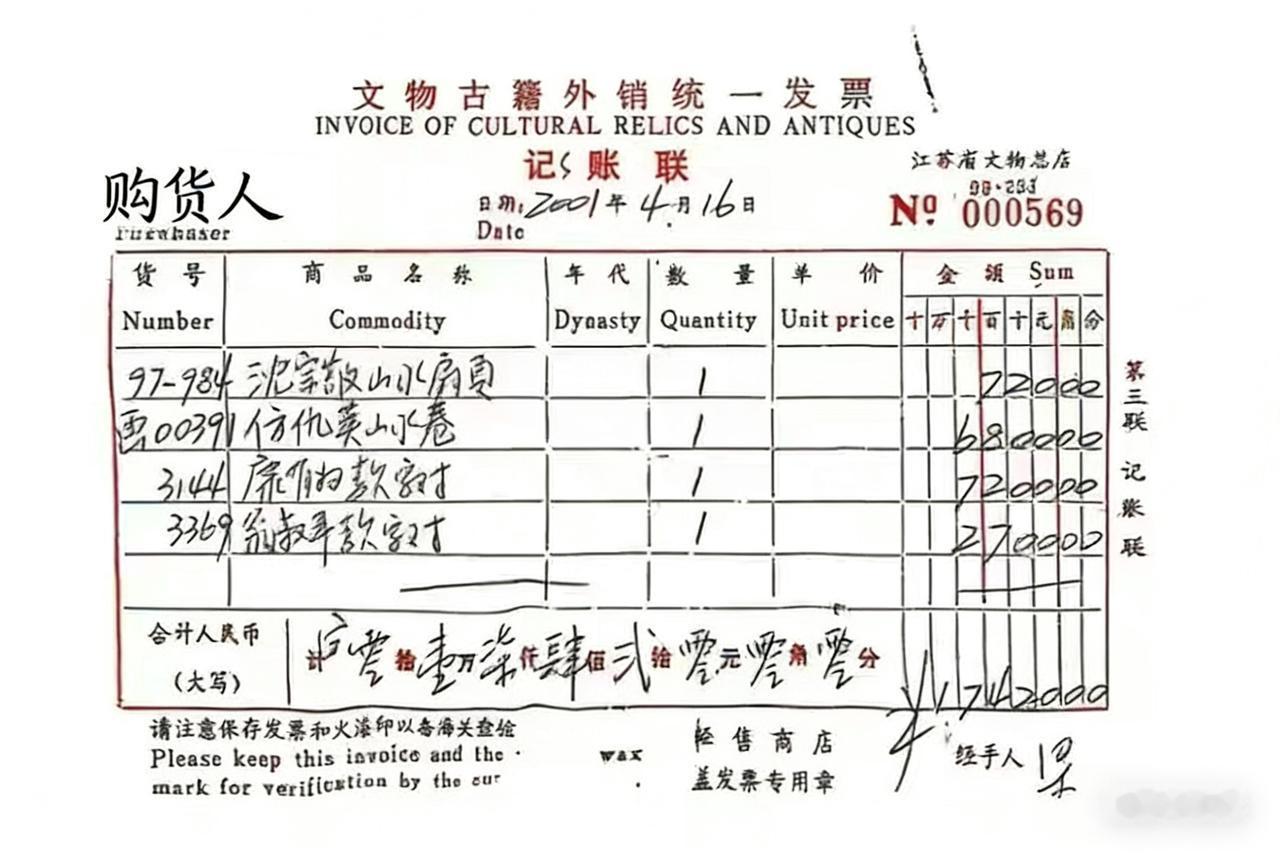 文物古籍外销统一发票
INVOICE OF CULTURAL RELICS AND ANTIQUES
记账联
江苏省文物总店
购货人
日期：2001年4月16日
Nº 000569
Date
货号 商品名称 年代 数量 单价 金额 Sum
Number Commodity Dynasty Quantity Unit price 十万千百十元角份
97-984 沈宗敬山水扇页 1 72000
画00391 仿仇英山水卷 1 680000
3144 款字对 1 720000
3369 翁款字对 1 270000
合计人民币 计零拾壹万柒仟肆佰贰拾零元零角零分
（大写） ¥1742000
第三联 记账联
请注意保存发票和火漆印以备海关查验
Please keep this invoice and the wax
mark for verification by the cur
经售商店
盖发票专用章
经手人